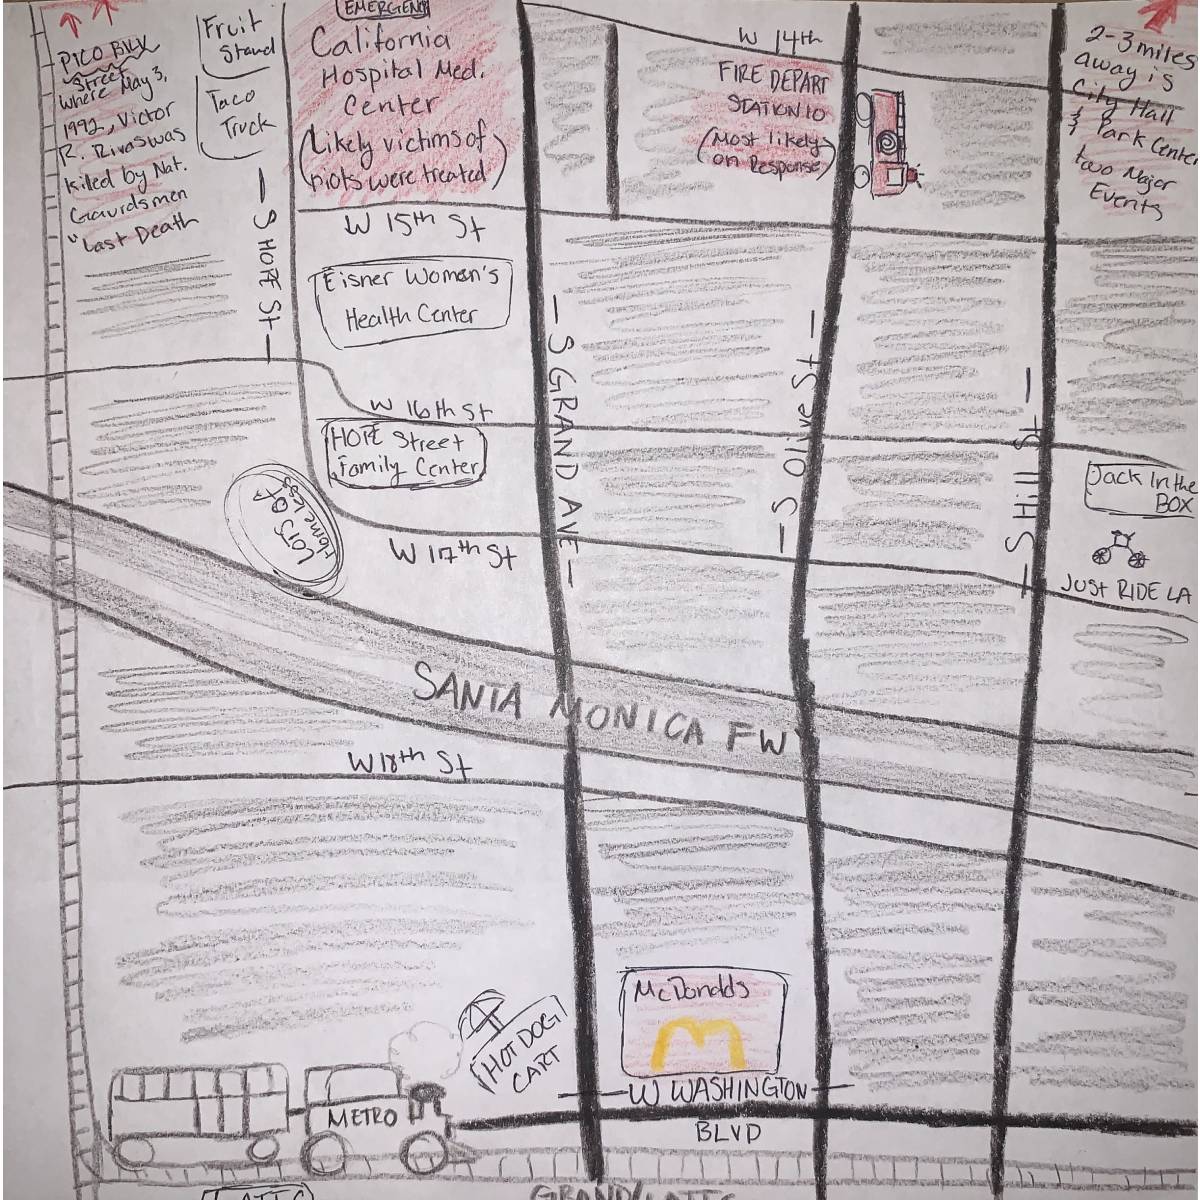 PICO BLVD
Street
Where May 3,
1992, Victor
R. Rivas was
killed by Nat.
Gaurdsmen
"Last Death
Fruit
Stand
Taco
Truck
EMERGENCY
California
Hospital Med.
Center
(Likely victims of
riots were treated)
W 14th
FIRE DEPART
STATION 10
(Most likely
on Response)
2-3 miles
away is
City Hall
& Park Center
two Major
Events
S HOPE St
W 15th St
Eisner Woman's
Health Center
S GRAND AVE
S Olive St
S Hill St
W 16th St
HOPE Street
Family Center
Lots of
Homeless
W 17th St
Jack In the
BOX
JUST RIDE LA
SANTA MONICA FWY
W 18th St
McDonalds
M
HOT DOG
CART
W WASHINGTON
BLVD
METRO
GRAND/LATTC
LATTC